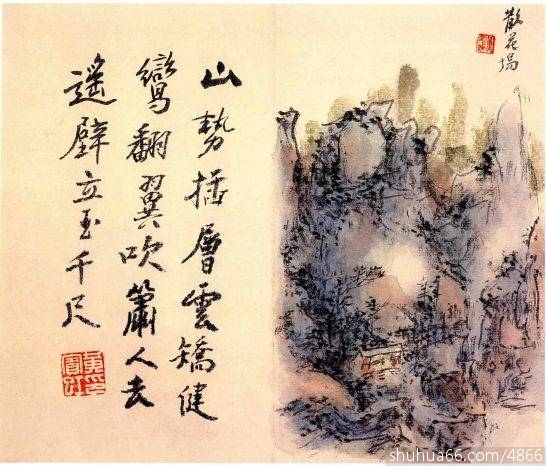 散花塢
山勢插層雲矯健
鸞翻翼吹簫人去
遥壁立玉千尺
shuhua66.com/4866